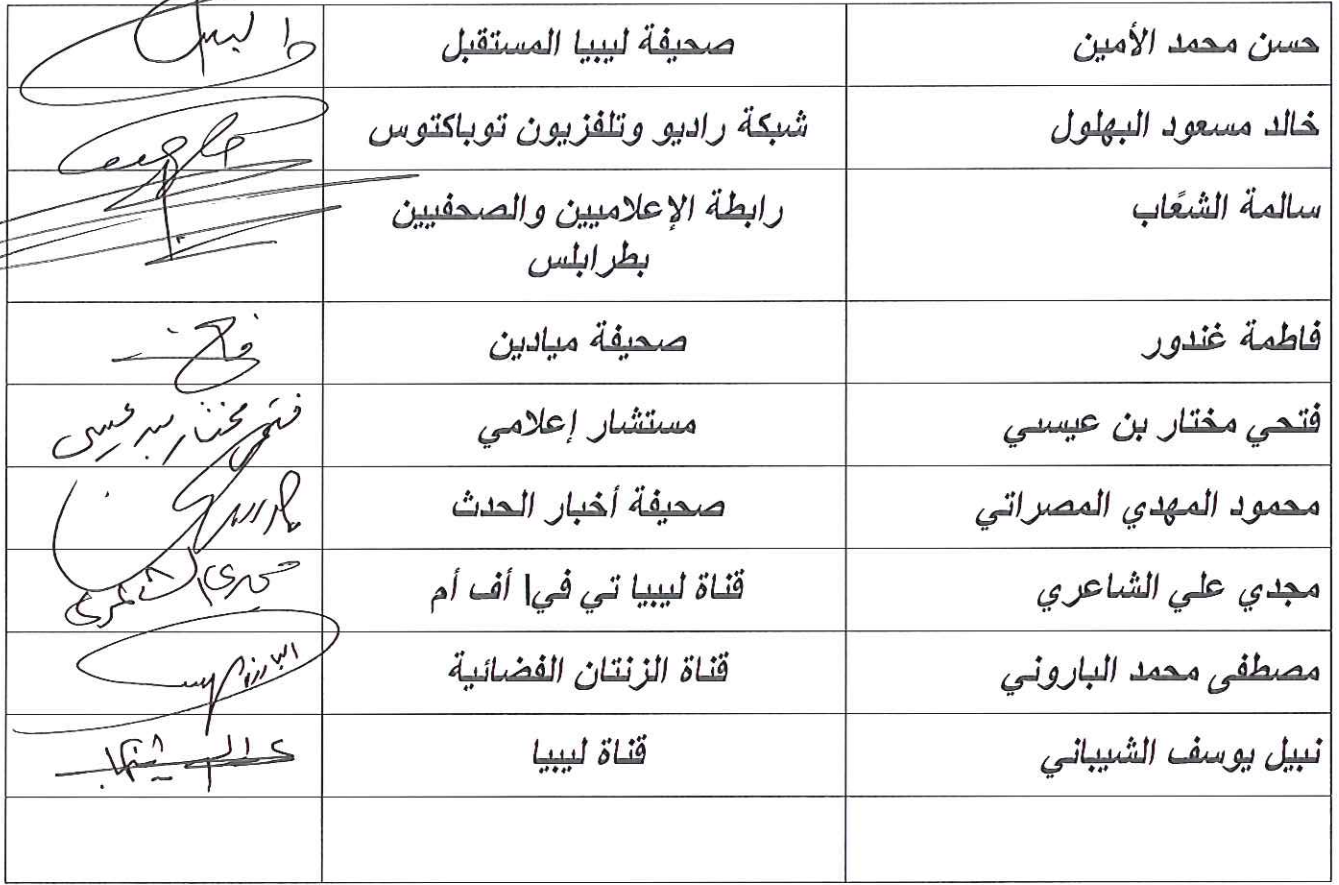 حسن محمد الأمين صحيفة ليبيا المستقبل
خالد مسعود البهلول شبكة راديو وتلفزيون توباكتوس
سالمة الشعّاب رابطة الإعلاميين والصحفيين
بطرابلس
فاطمة غندور صحيفة ميادين
فتحي مختار بن عيسي مستشار إعلامي فتحي مختار بن عيسى
محمود المهدي المصراتي صحيفة أخبار الحدث
مجدي علي الشاعري قناة ليبيا تي في| أف أم
مصطفى محمد الباروني قناة الزنتان الفضائية
نبيل يوسف الشيباني قناة ليبيا